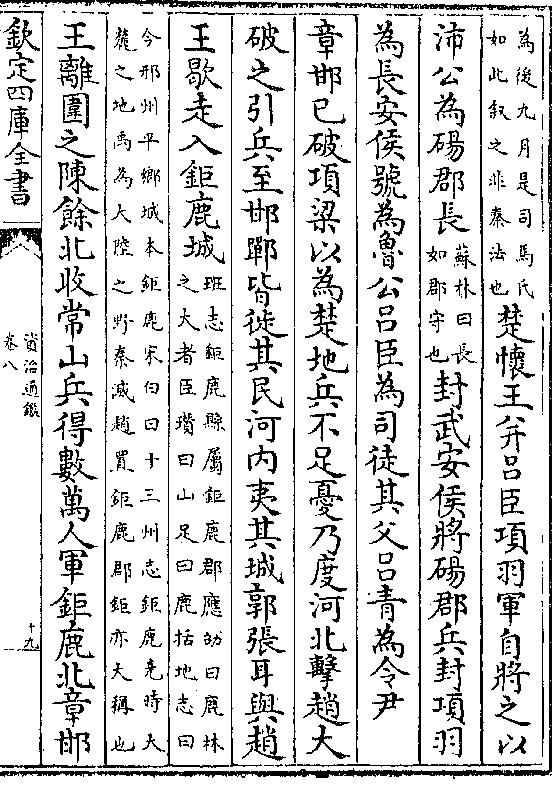 為後九月是司馬氏
如此叙之非秦法也
楚懷王并吕臣項羽軍自將之以
沛公為碭郡長
蘇林曰長
如郡守也
封武安侯將碭郡兵封項羽
為長安侯號為魯公吕臣為司徒其父吕青為令尹
章邯已破項梁以為楚地兵不足憂乃度河北擊趙大
破之引兵至邯鄲皆徙其民河内夷其城郭張耳與趙
王歇走入鉅鹿城
班志鉅鹿縣屬鉅鹿郡應劭曰鹿林
之大者臣瓚曰山足曰鹿括地志曰
今邢州平鄉城本鉅鹿宋白曰十三州志鉅鹿堯時大
麓之地禹為大陸之野秦滅趙置鉅鹿郡鉅亦大稱也
王離圍之陳餘北收常山兵得數萬人軍鉅鹿北章邯
欽定四庫全書
資治通鑑
卷八
十九